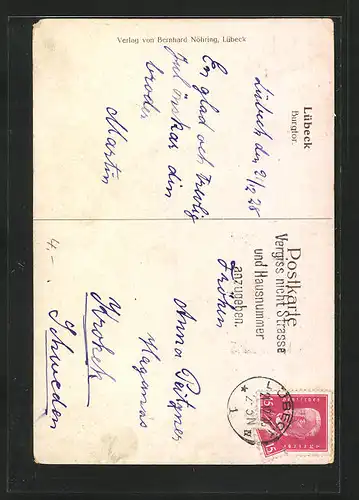 Verlag von Bernhard Nöhring, Lübeck
Lübeck
Burgtor.
Lübeck den 21/12 28
En glad och trevlig
Jul önskar din
broder
Martin
Postkarte
Vergiss nicht Strasse
und Hausnummer
anzugeben.
Fröken
Anna
Schweden
4.-
LÜBECK
1
15
15